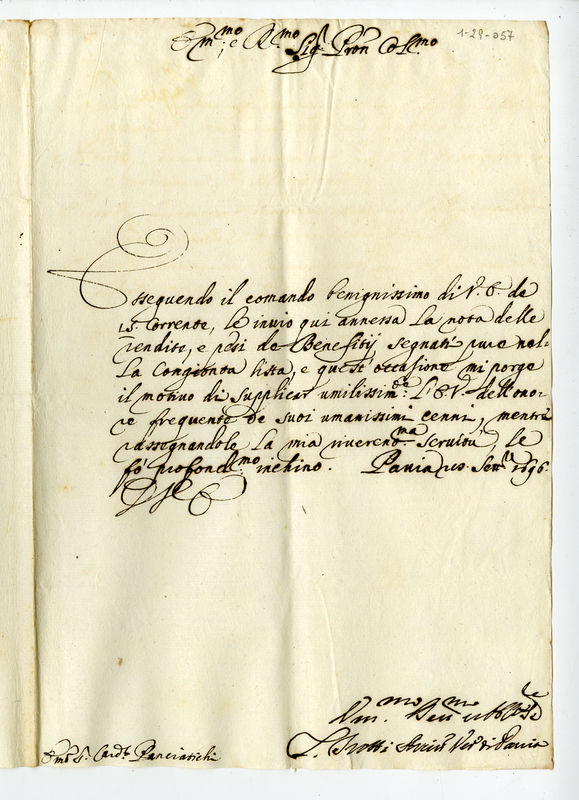 1-29-057
Em.mo e R.mo Sig.r Pron Col.mo
Esseguendo il comando benignissimo di V. E. de
15. Corrente, le invio qui annessa la nota delle
rendite, e pesi de Beneficij segnati pure nel-
la Congionta lista, e quest'occasione, mi porge
il motivo di supplicar umilissim.te l'E. V. dell'ono-
re frequente de suoi umanissimi cenni, mentre
rassegnandole la mia riverend.ma servitù, le
fò profond.mo inchino. Pavia Sett. 1696.
D. V. E.
Um.mo
Trotti Vesc.o di Pavia
Em.o S. Card. Panciatichi